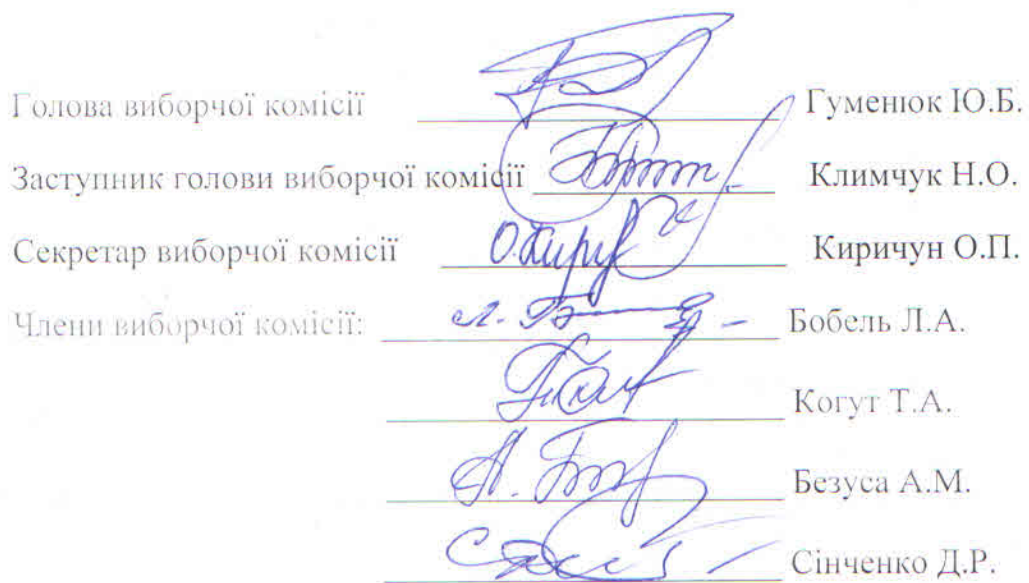 Голова виборчої комісії Гуменюк Ю.Б.
Заступник голови виборчої комісії Климчук Н.О.
Секретар виборчої комісії О.Кирич Киричун О.П.
Члени виборчої комісії: Бобель Л.А.
Когут Т.А.
Безуса А.М.
Сінченко Д.Р.